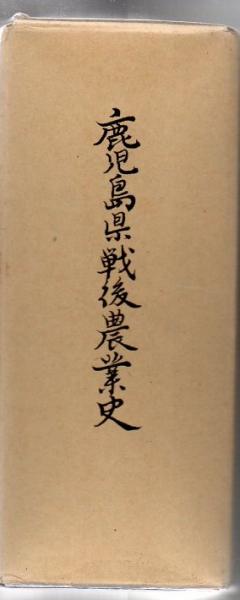 鹿児島県戦後農業史